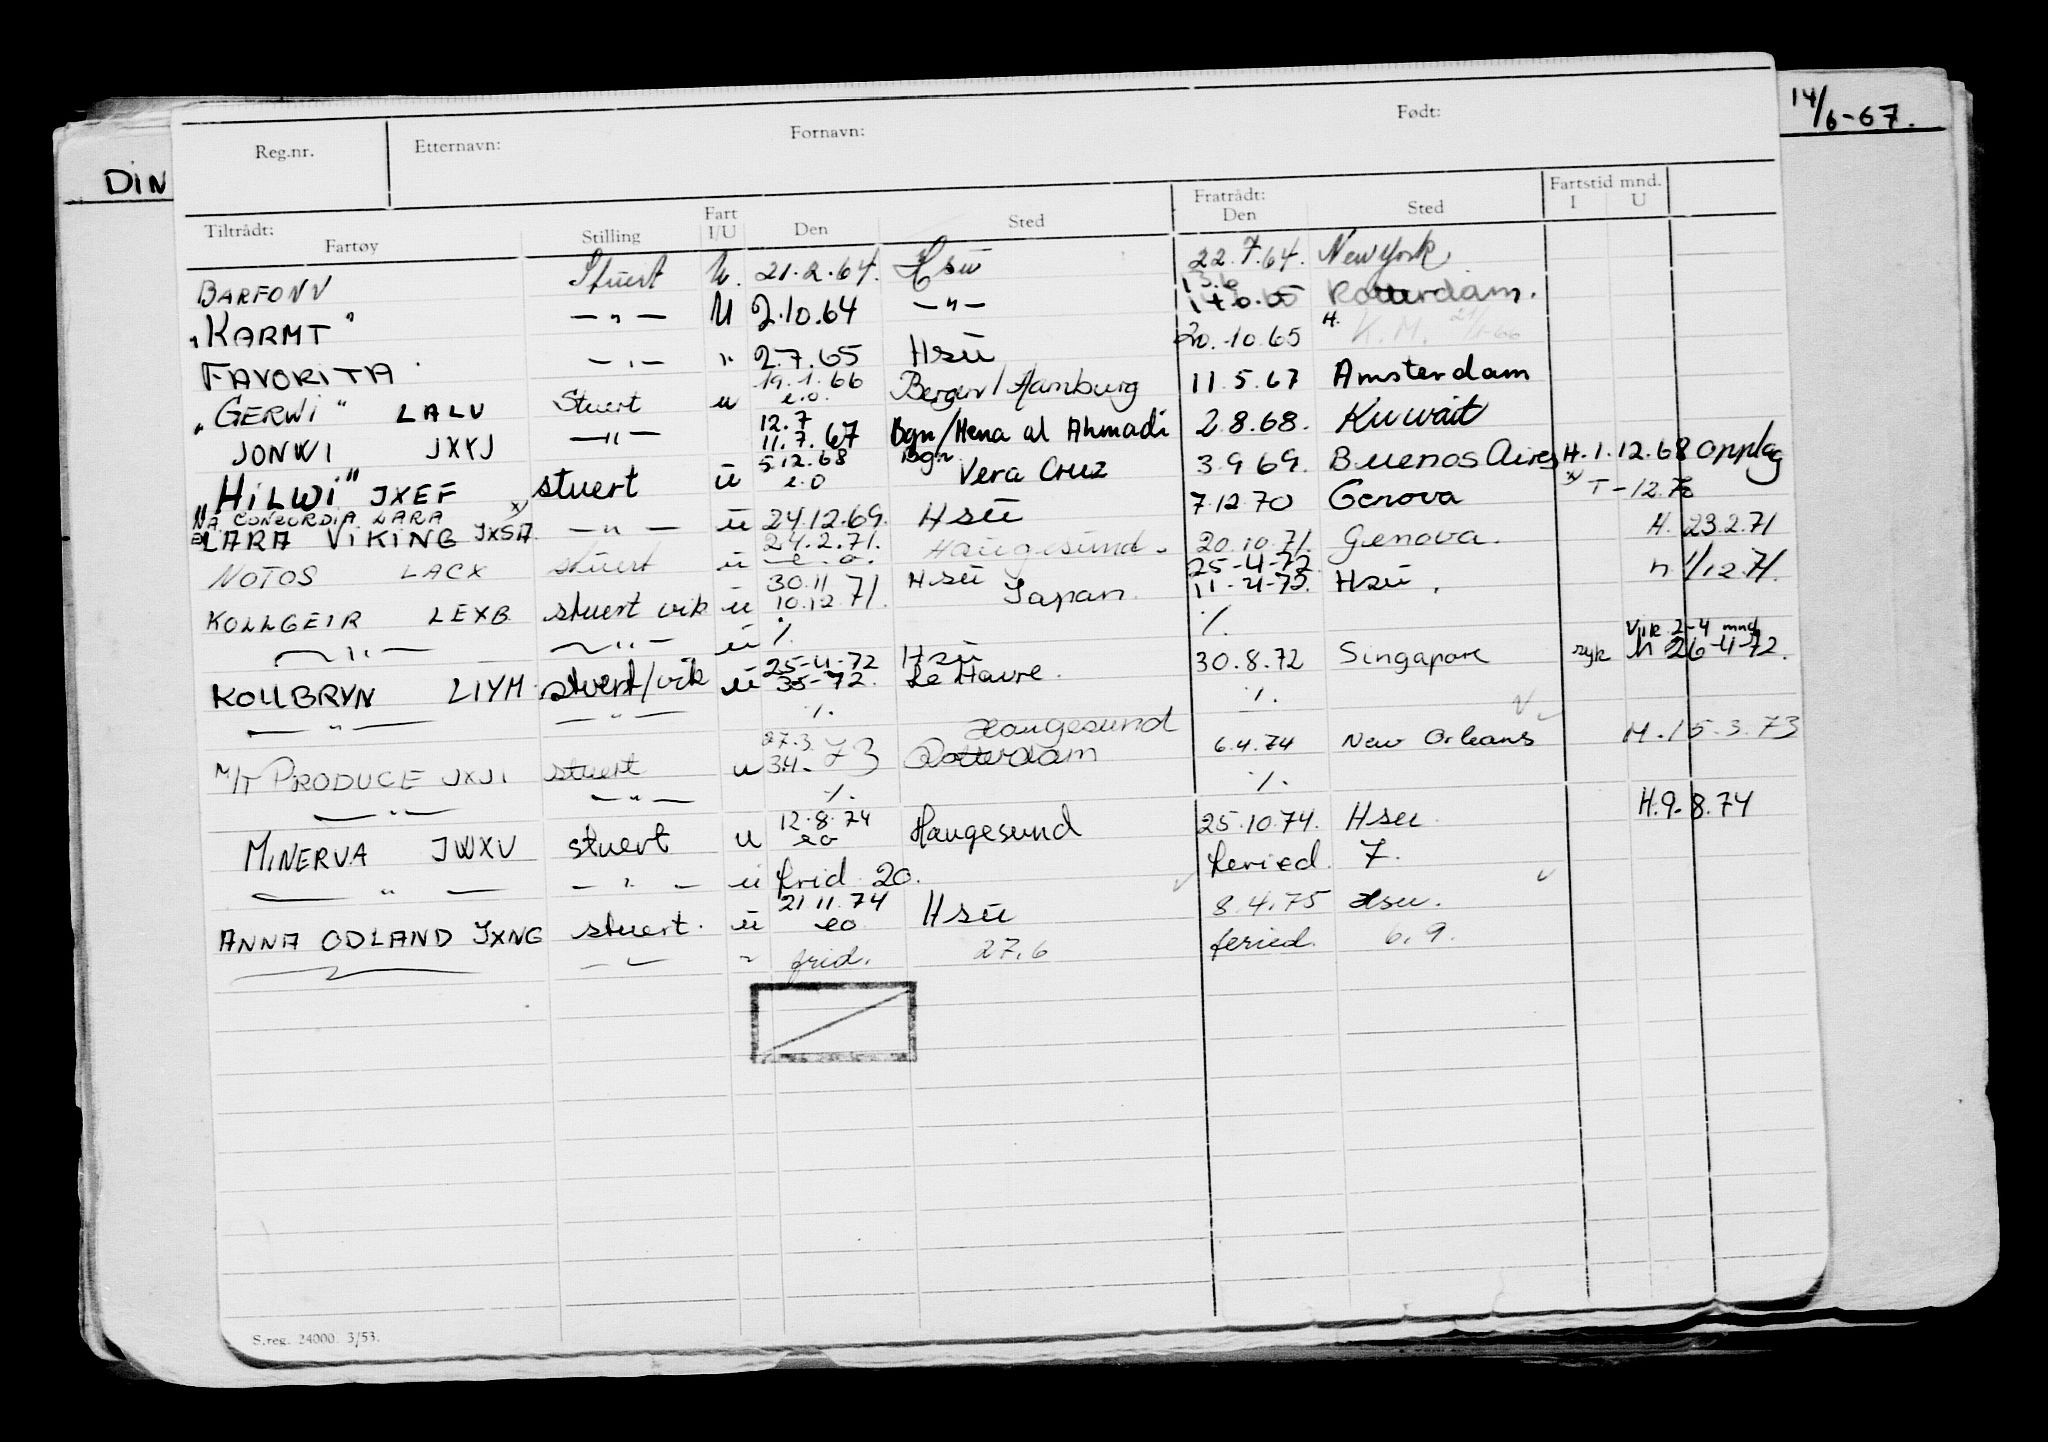 DIN 14/6-67.
Reg.nr. Etternavn: Fornavn: Født:
Tiltrådt: Fartøy Stilling Fart I/U Den Sted Fratrådt: Den Sted Fartstid mnd. I U
BARFONN Stuert U. 21.2.64. Hsu 22.7.64. New York
"KARMT" — " — U 2.10.64 — " — 13.6 Rotterdam.
FAVORITA — " — " 2.7.65 Hsu 20.10.65 H. K.M. 21/1-66
"GERWI" LALU Stuert u 19.1.66 e.o. Bergen/Hamburg 11.5.67 Amsterdam
JONWI JXYJ — " — 12.7 11.7.67 Bgn/Mena al Ahmadi 2.8.68. Kuwait
"HILWI" JXEF stuert u 5.12.68 e.o Bgn Vera Cruz 3.9.69. Buenos Aires H.1.12.68 opplag
NÅ CONCORDIA LARA x)
EX LARA VIKING JXSA — " — u 24.12.69. Hsu 7.12.70 Genova x) T-12.70
NOTOS LACX stuert u 24.2.71. e.o. Haugesund. 20.10.71. Genova. H. 23.2.71
KOLLGEIR LEXB stuert vik u 30.11 10.12.71. Hsu Japan. 25-4-72 11-4-72. Hsu. n 1/12.71.
— " — — " — u ·/. ·/.
KOLLBRYN LIYM stuert/vik u 25-4-72 3-5-72. Hsu Le Havre. 30.8.72 Singapore syk Vik 2-4 mnd M 26-4-72.
— " — — " — ·/. ·/.
M/T PRODUCE JXJI stuert u 27.3. 3.4.73 Haugesund Rotterdam 6.4.74 New Orleans M.15.3.73
— " — — " — ·/. ·/.
MINERVA JWXU stuert u 12.8.74 eo Haugesund 25.10.74. Hsu. H.9.8.74
— " — — " — u frid 20. feried. 7.
ANNA ODLAND JXNG stuert. u 21.11.74 eo Hsu 8.4.75 Hsu.
— " — " frid. 27.6 feried. 6.9.
S.reg. 24000. 3/53.